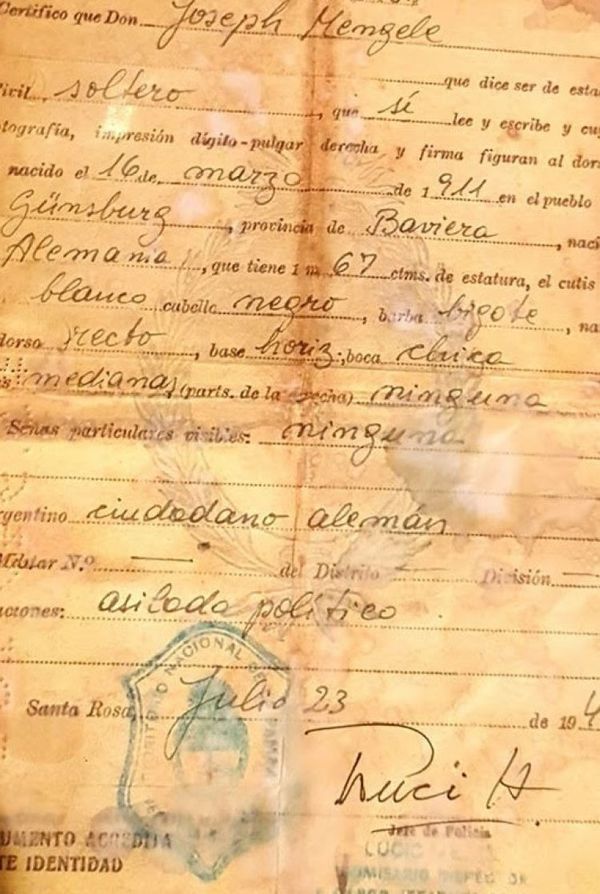 Certifico que Don Joseph Mengele
que dice ser de esta
civil soltero, que sí lee y escribe y cuy
otografía, impresión dígito-pulgar derecha y firma figuran al dors
nacido el 16 de marzo de 1911 en el pueblo
Günsburg, provincia de Baviera, naci
Alemania, que tiene 1 m 67 ctms. de estatura, el cutis
blanco cabello negro, barba bigote, na
dorso recto, base horiz., boca chica
medianas (parts. de la oreja) ninguna
Señas particulares visibles: ninguna
rgentino ciudadano alemán
Militar N.º — del Distrito — División —
aciones: asilado político
Santa Rosa, Julio 23 de 194
TERRITORIO NACIONAL DE LA PAMPA
Jefe de Policía
LUCIO
UMENTO ACREDITA
TE IDENTIDAD
COMISARIO INSPECTOR